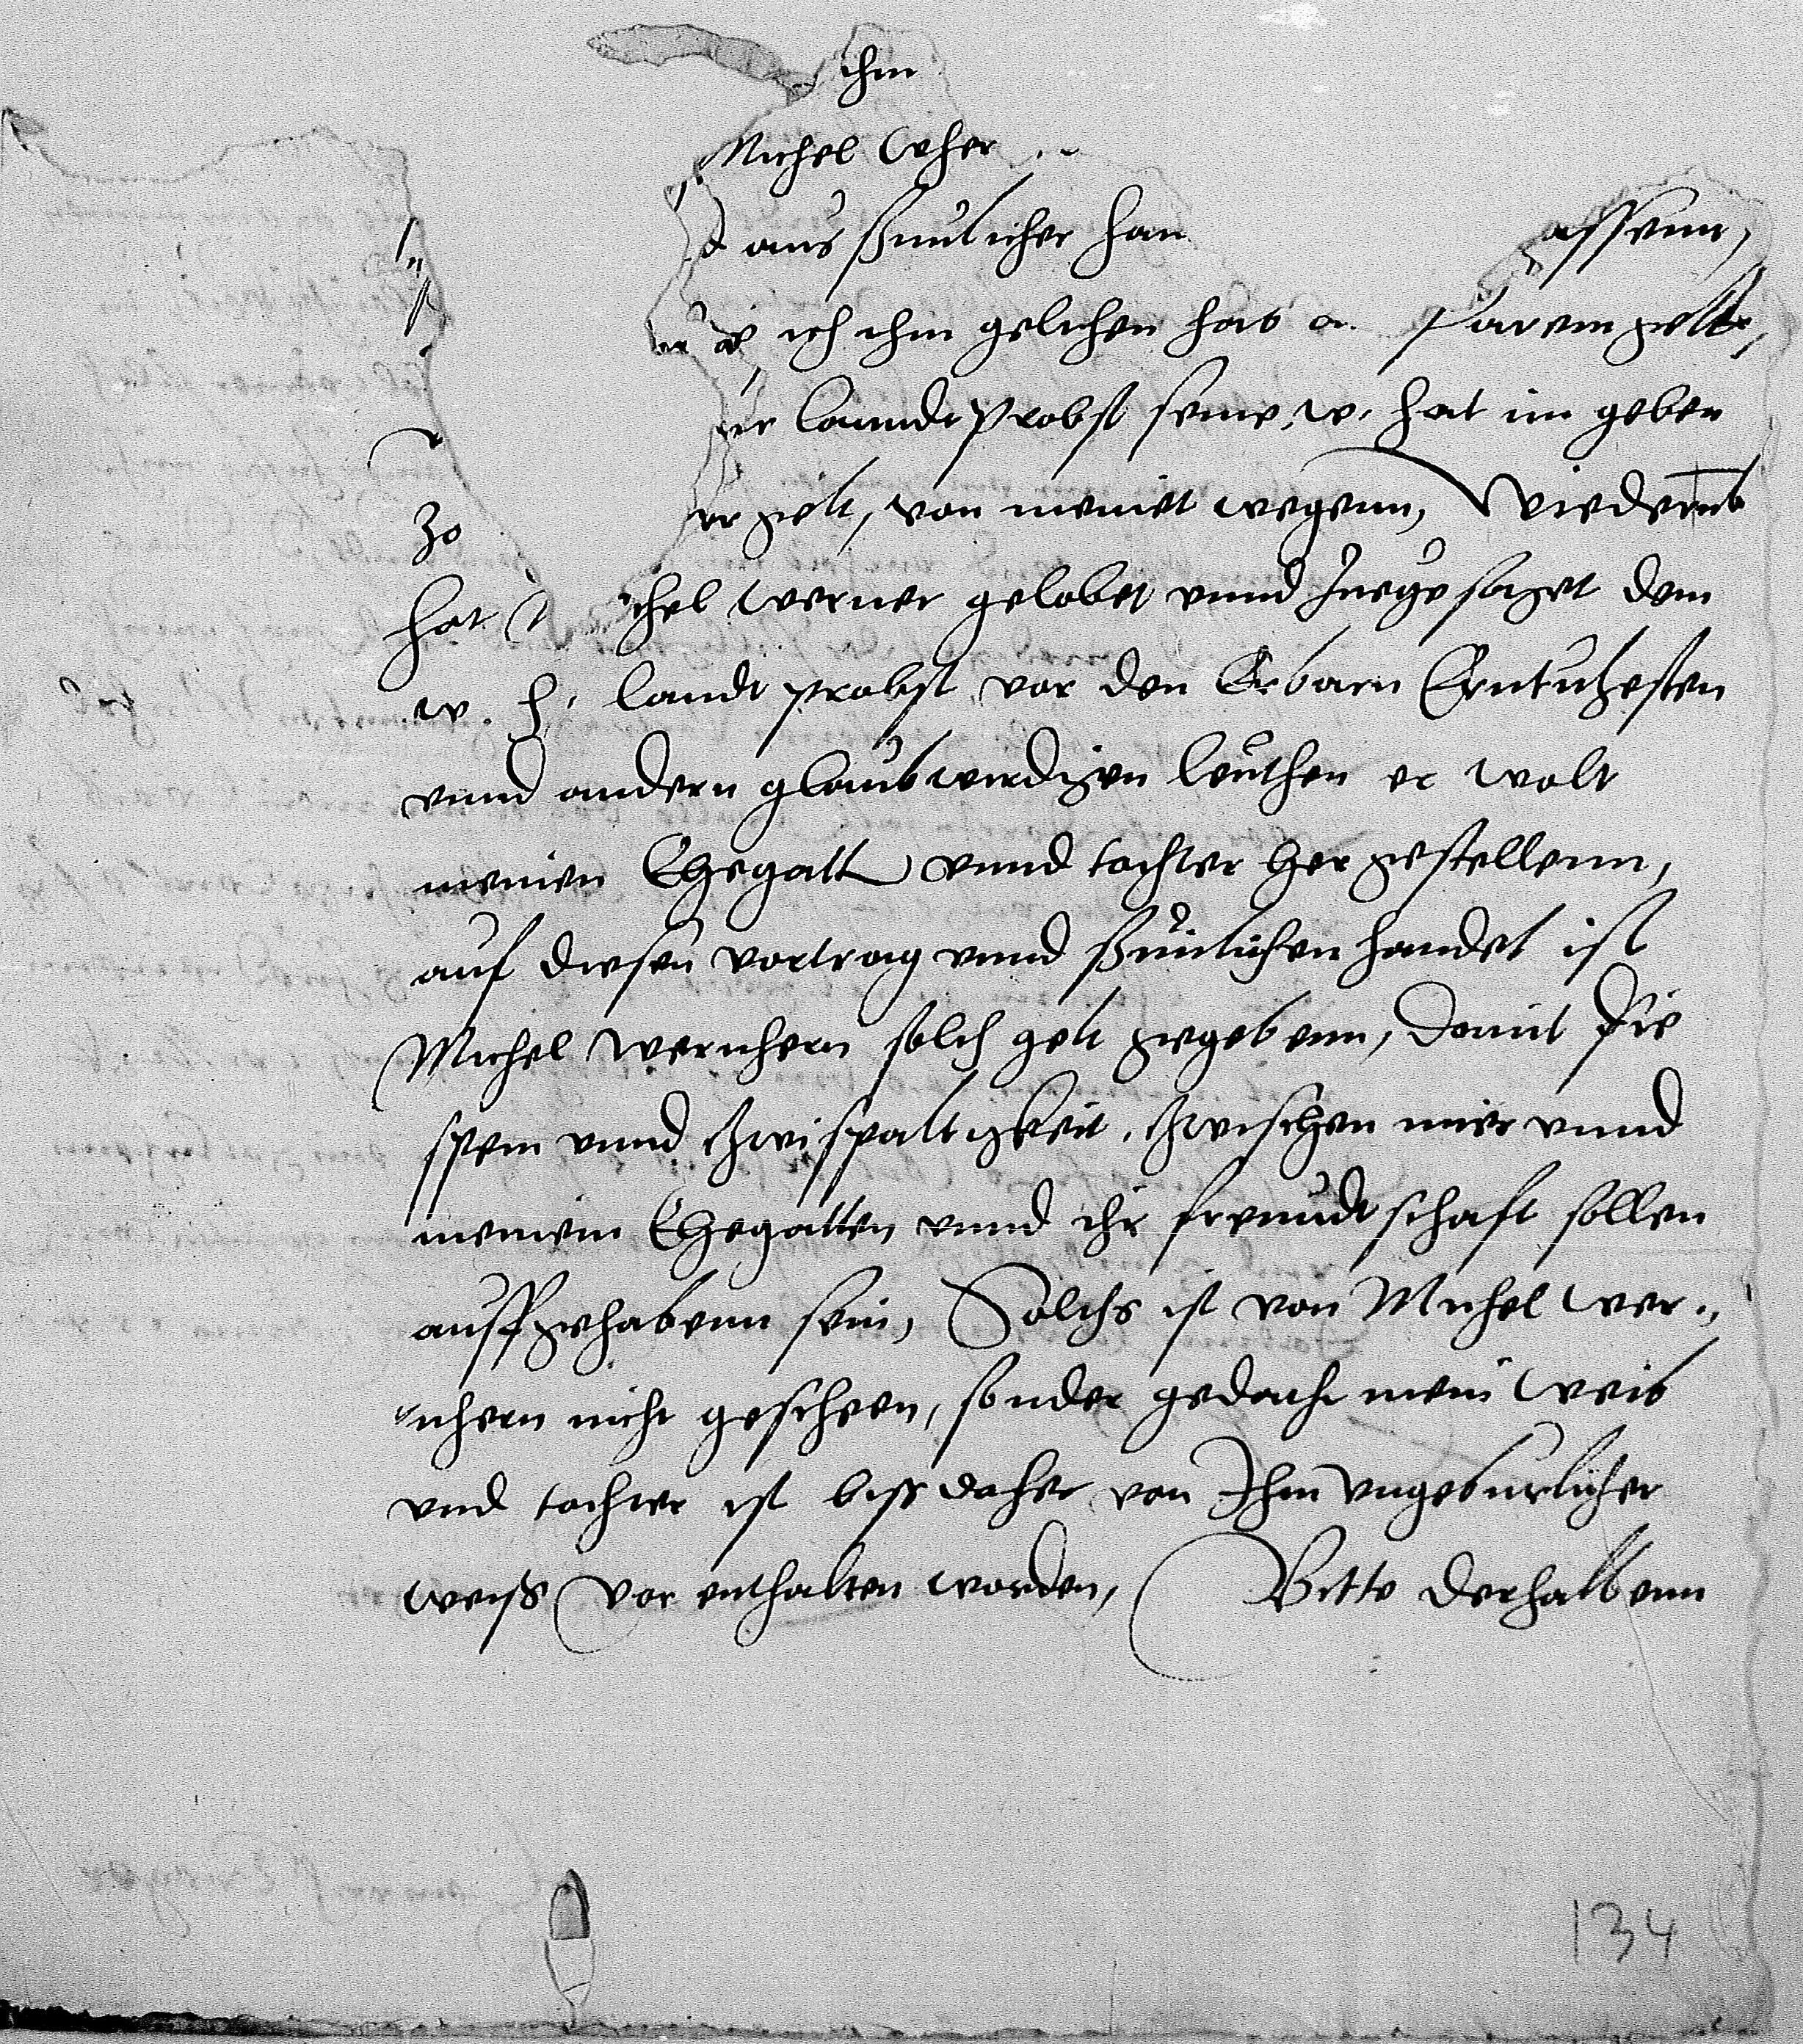 ihm
Michel Wher
d aus ßunlicher han assenn,
ich ihm gelihen hab a. parem gelt,
er lanndtprobst seine, w. hat im geben
30 er gelt, von meniet wegenn, Wiederumb
hat M ichel Werner gelobet unnd zuegesaget dem
w. h. landt probst vor den Erbarn Erntuhesten
unnd andern glaubwirdigen leuthen er wolt
meinen Ehegatt unnd tochter her gestellenn,
auf diesen vortrag unnd ßunlichen handel ist
Michel Wernhern solch gelt gegebenn, Damit die
speen unnd zwispaltigkeit, zwischen mier unnd
meinem Ehegatten unnd ihr freundtschaft sollen
auffgehabenn sein, Solchs ist von Michel Wer.,
nhern nicht gescheen, sonder gedacht mein Weib
und tochter ist biss daher von Ihm ungeburlicher
weiß vor enthalten worden, Bitte derhalbenn
134